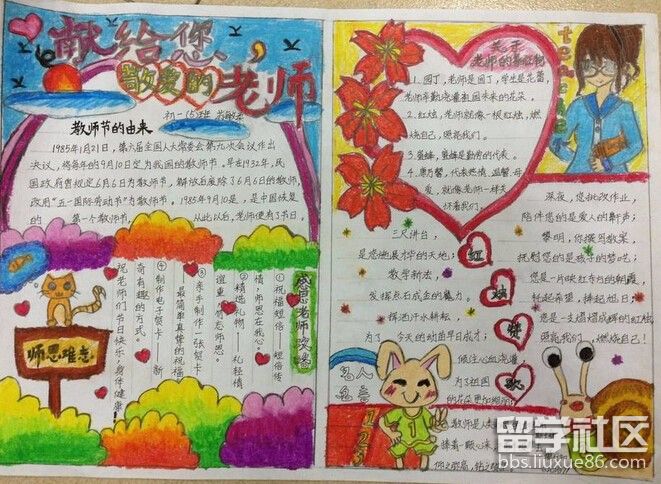 献给您，
敬爱的老师
初一(5)班
教师节的由来
1985年1月21日，第六届全国人大常委会第九次会议作出
决议，将每年的9月10日定为我国的教师节。早在1932年，民
国政府曾规定6月6日为教师节，解放后废除了6月6日的教师节，
改用“五一国际劳动节”为教师节。1985年9月10日，是中国恢复
的 第一个教师节， 从此以后，老师便有了节日。
感恩老师
①祝福短信——短信传
情，师恩在我心。
②精选礼物 礼轻情
谊重
③亲手制作一张贺卡——
最简单真挚的祝福
④制作电子贺卡——新
奇有趣的方式。
祝老师们节日快乐，身体健康！
师恩难忘
关于
老师的
1.园丁，老师是园丁，学生是花蕾，
老师辛勤浇灌祖国未来的花朵。
2.红烛，老师就像一根红烛，燃
烧自己，照亮我们。
3.蜜蜂，蜜蜂是勤劳的代表。
4.康乃馨，代表热情、温馨、母
爱，就像老师一样关
怀着我们。
teacher
三尺讲台，
是您施展才华的天地；
教学新法，
发挥点石成金的魔力。
挥洒汗水耕耘，
为了 今天的幼苗早日成才；
倾注心血浇灌
为了祖国
的花朵更加绚丽
红
烛
颂
歌
深夜，您批改作业，
陪伴您的是爱人的鼾声；
黎明，你撰写教案
抚慰您的是孩子的梦呓；
您是一片映红春内的朝霞，
托起希望，捧起旭日；
您是一支熠熠成辉的红烛
照亮我们，燃烧自己！
名人
名言
1
2
3
教师是
捧着一颗心来，
留学社区
bbs.liuxue86.com